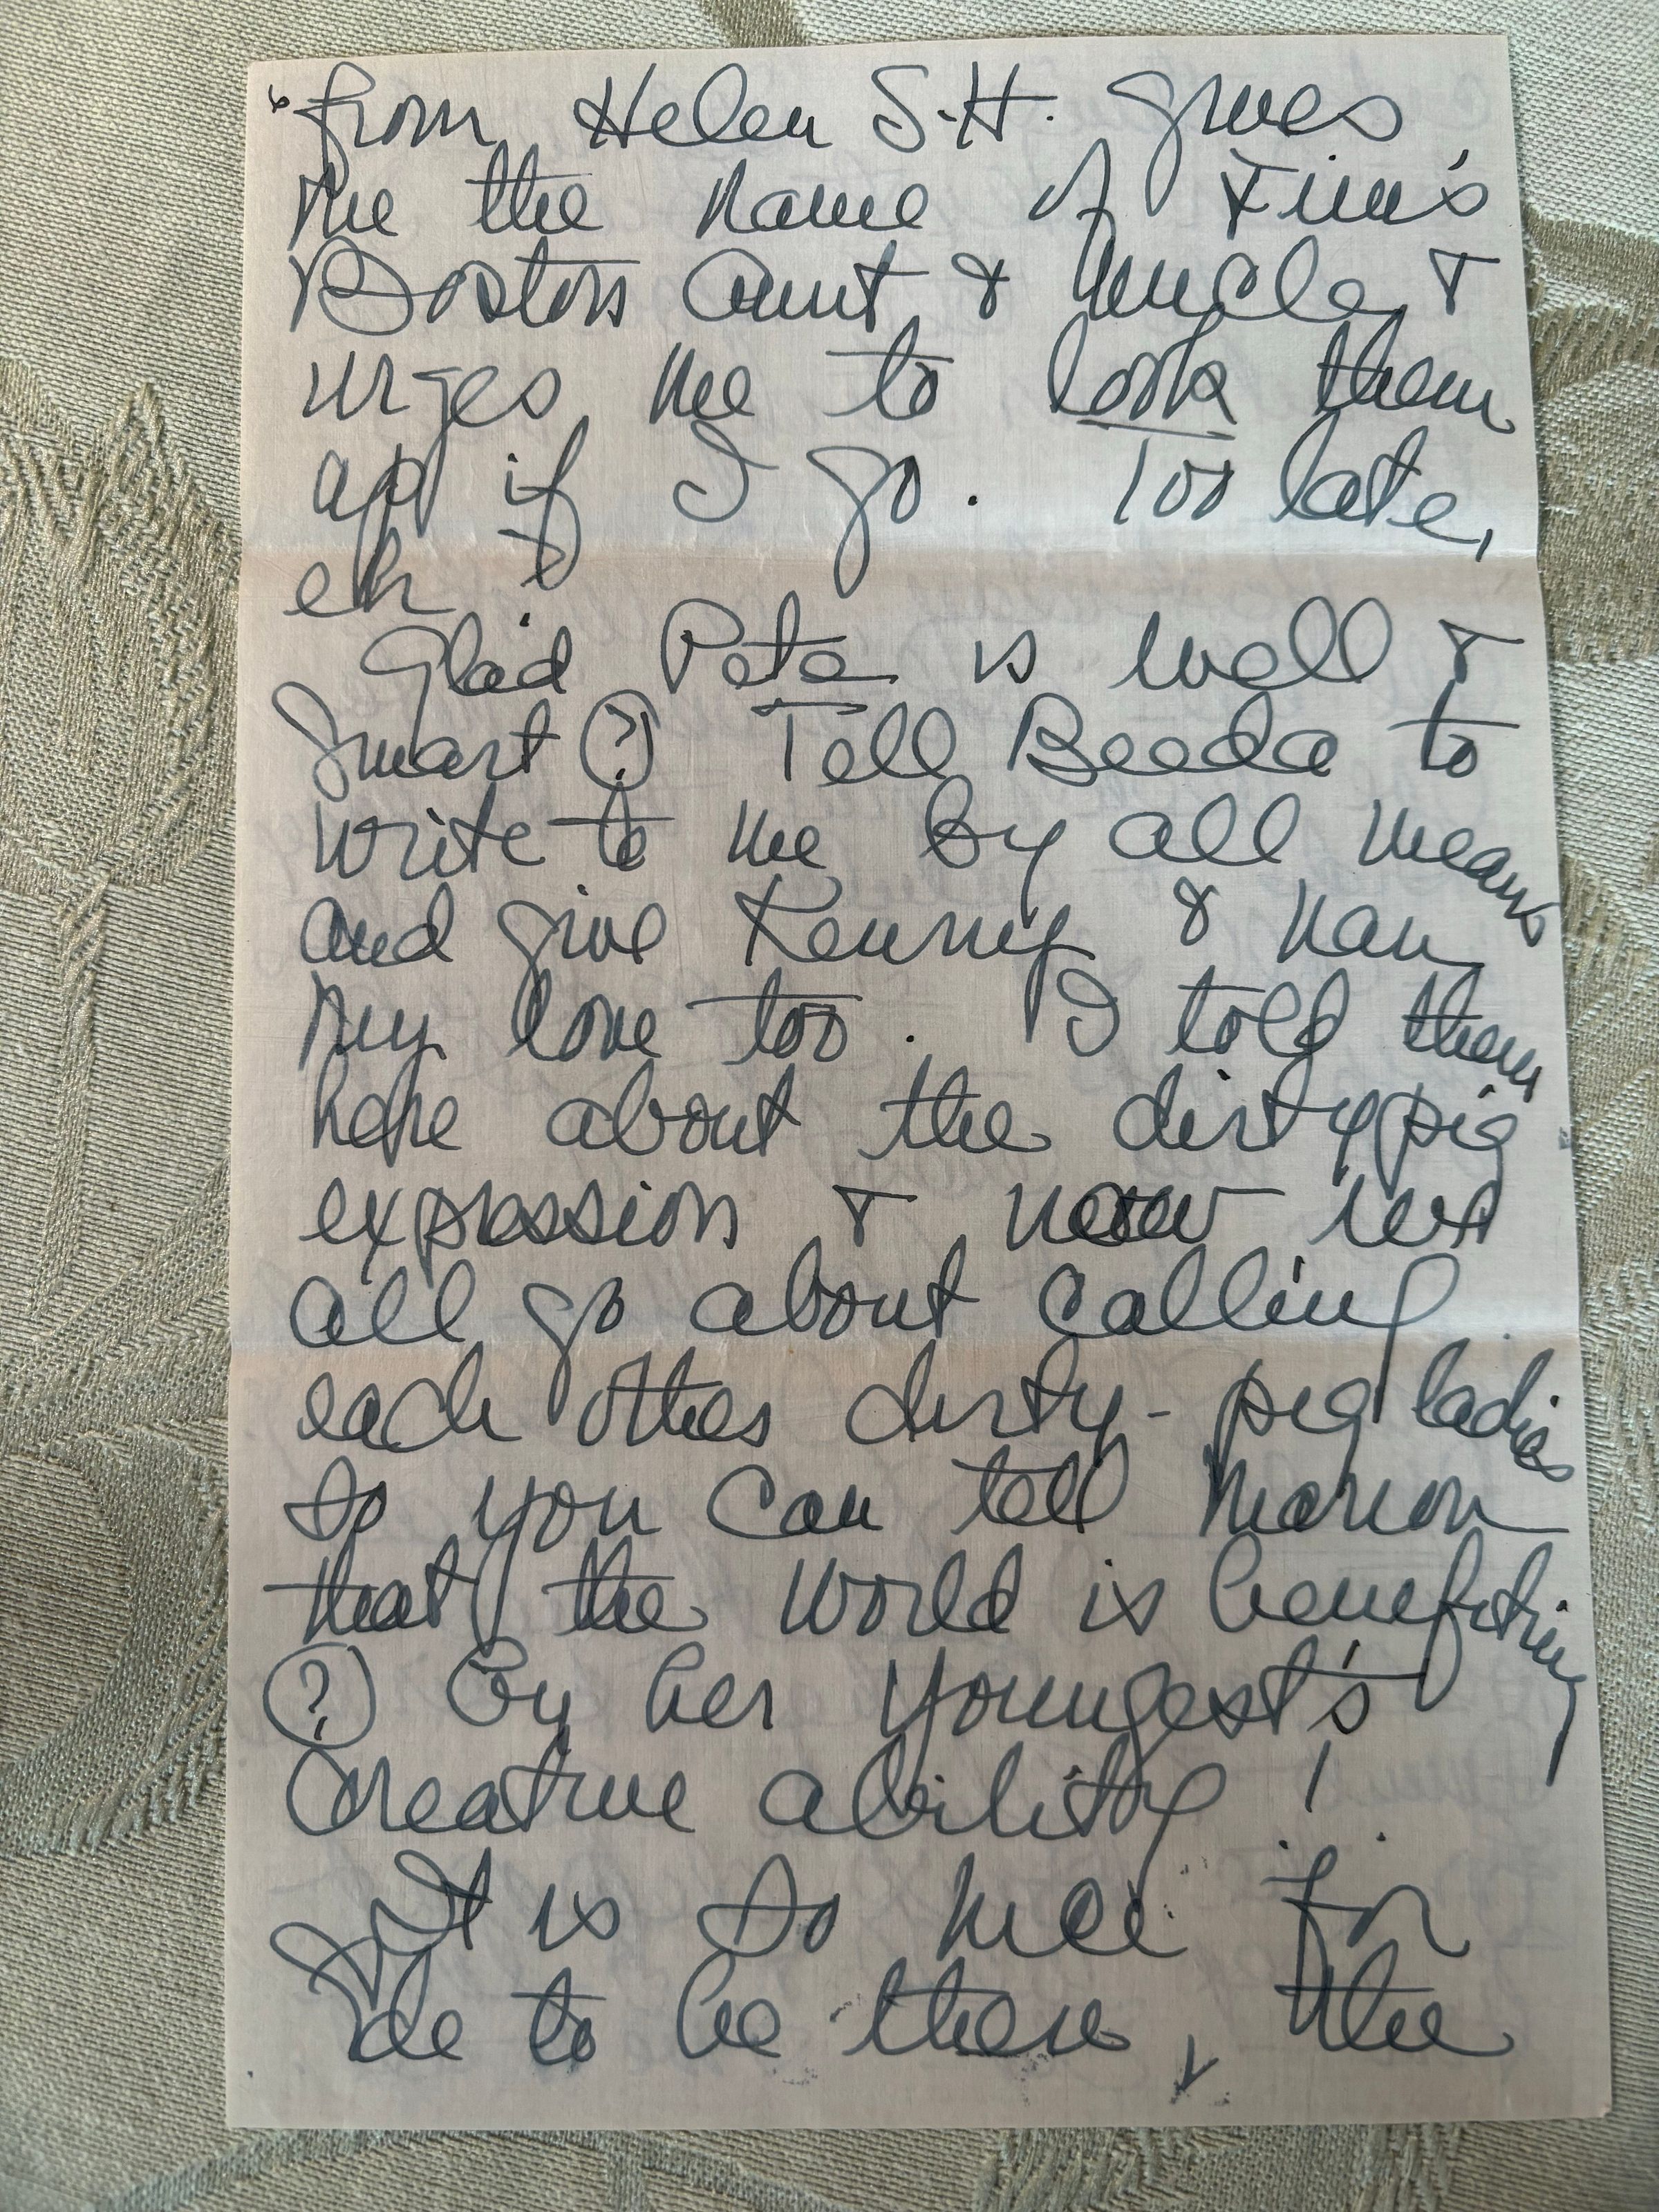 from Helen S.H. gives
me the name of
Boston Aunt & Uncle &
urges me to look them
up if I go. Too late,
eh?
Glad Pete is well &
Smart (?) Tell Beeda to
write to me by all means
and give Kenny & Nan
my love too. I told them
here about the dirty pig
expression & now we
all go about calling
each other dirty-pig ladies
so you can tell Marion
that the world is benefiting
(?) by her youngest's
Creative ability!
It is so nice for
to be there, the